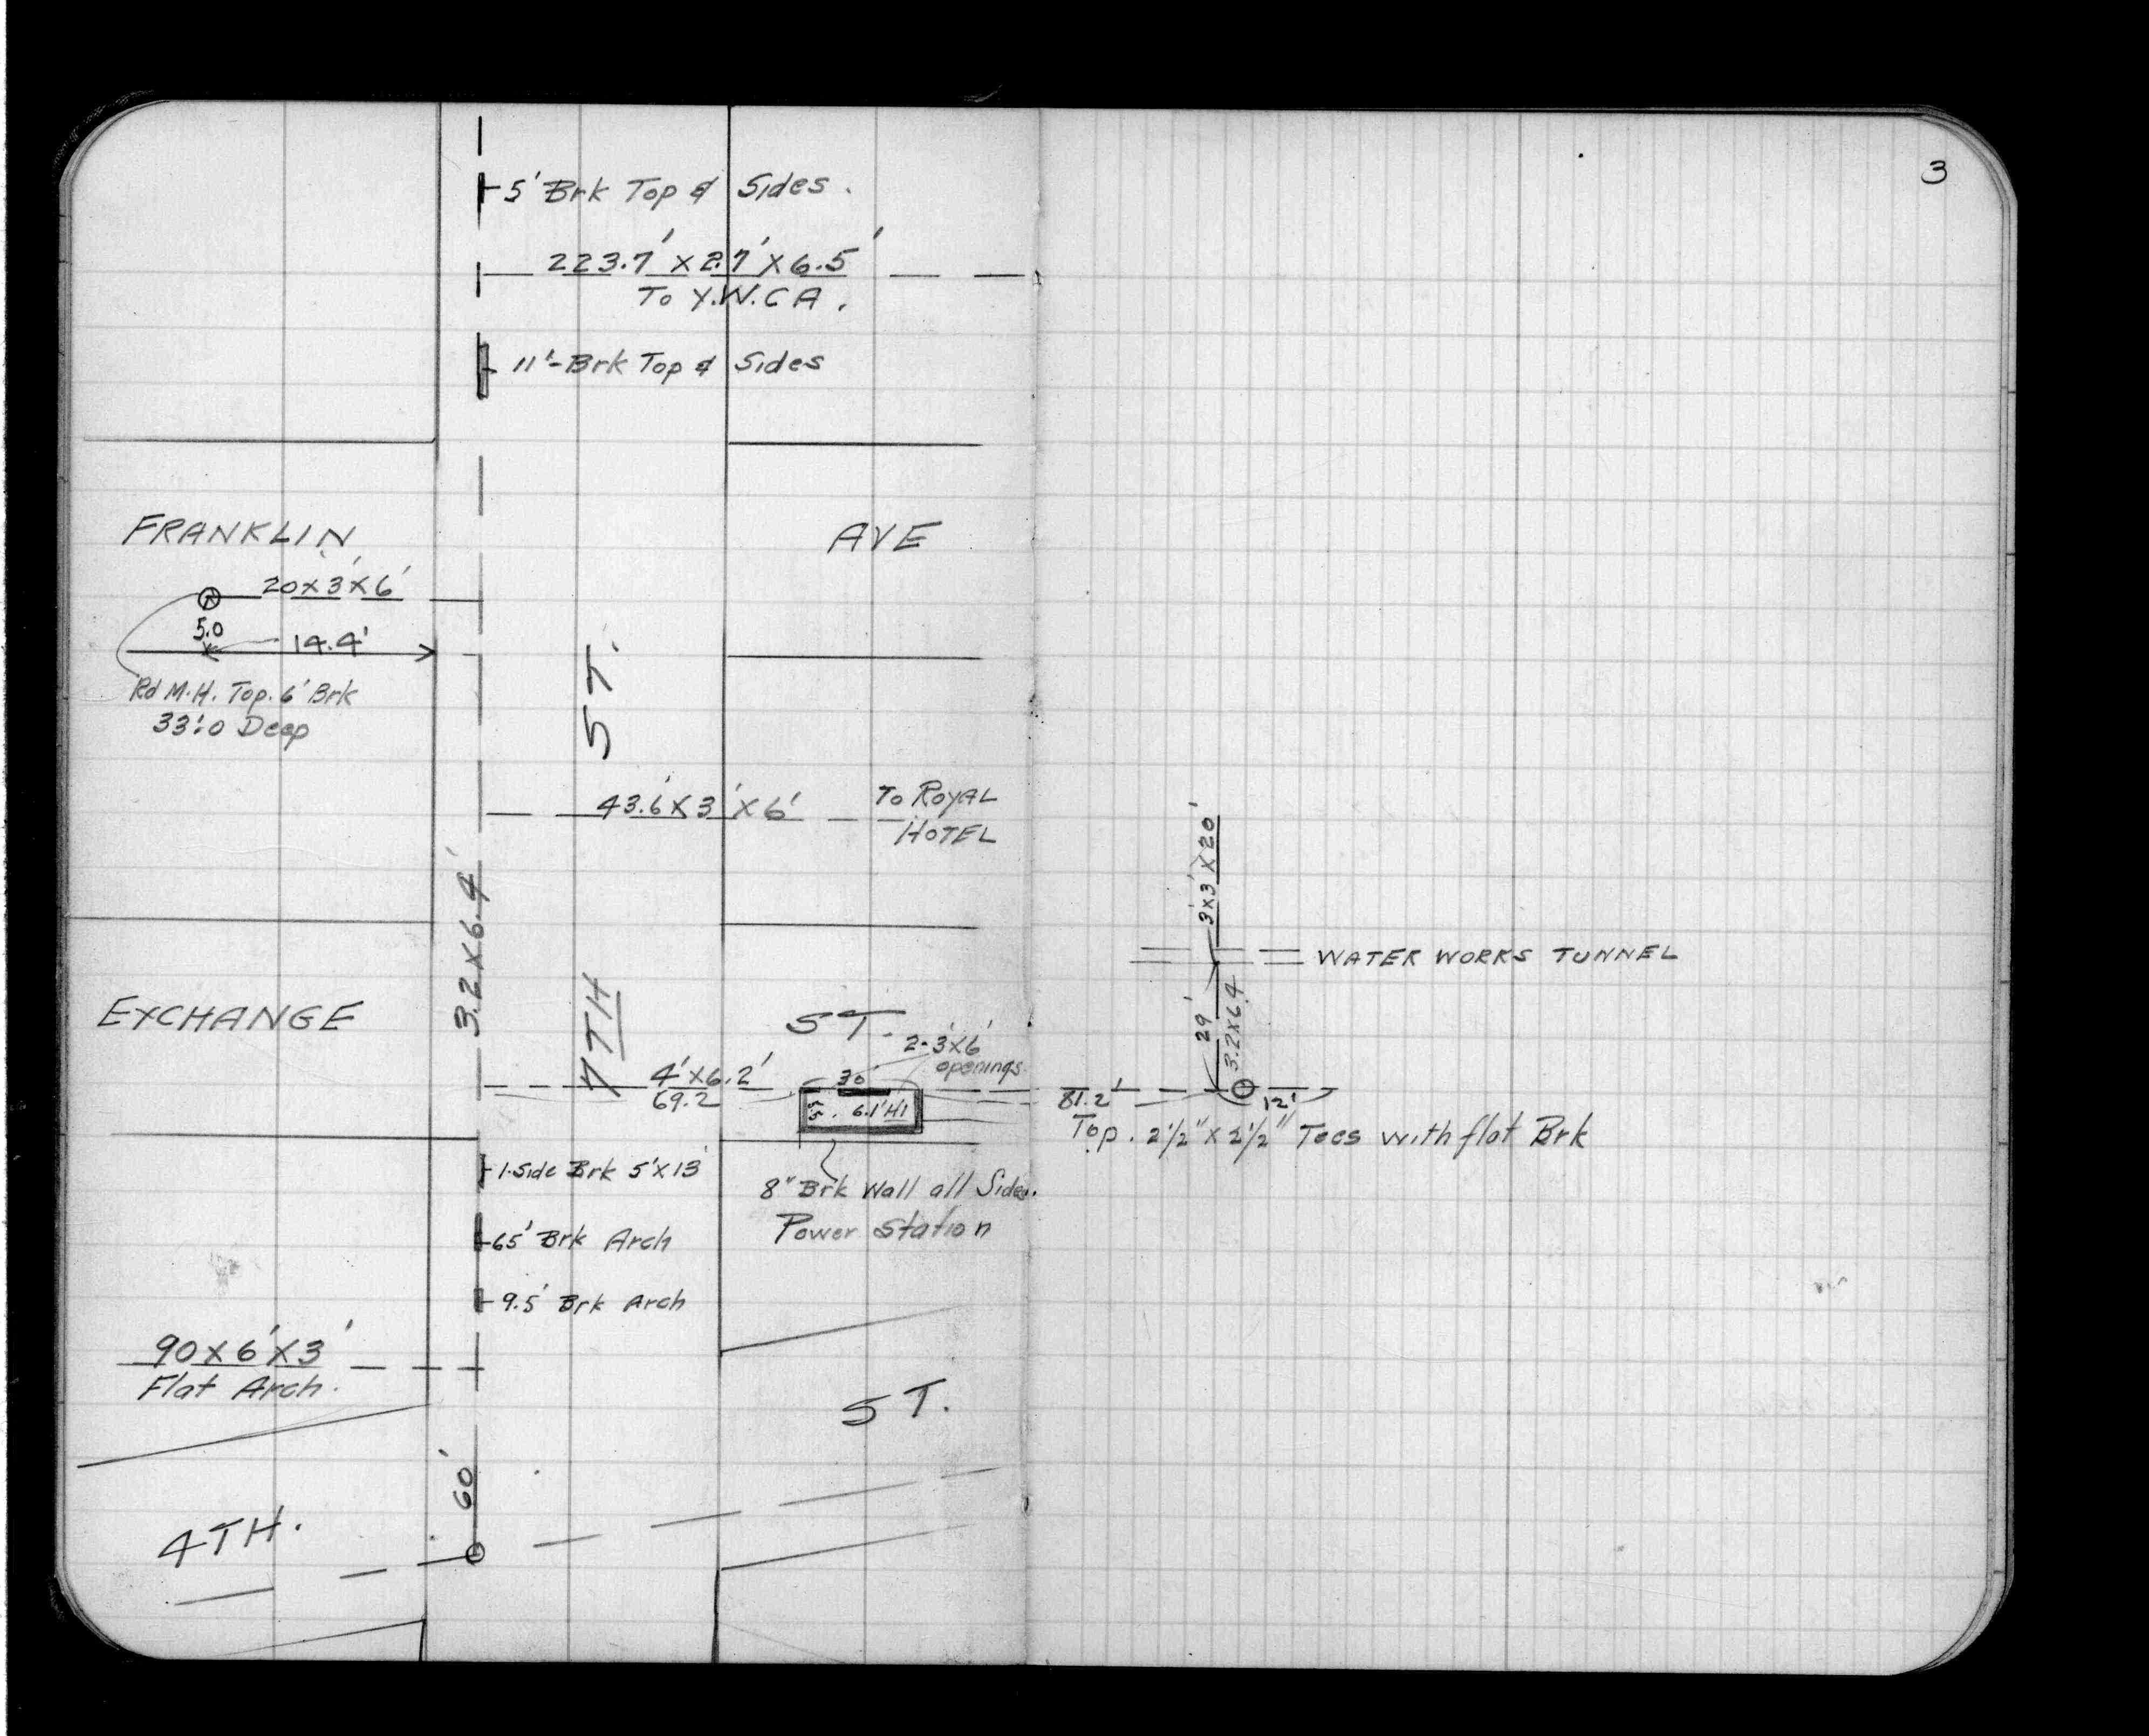 3
5' Brk Top & Sides.
223.7' x 2.7' x 6.5'
To Y.W.C A.
11'-Brk Top & Sides
FRANKLIN AVE
20 x 3' x 6'
5.0
14.4'
Rd M.H. Top. 6' Brk
33'.0 Deep
7TH ST.
43.6' x 3' x 6'
To ROYAL
HOTEL
3.2 x 6.4'
3'x3'x20'
WATER WORKS TUNNEL
29'
3.2x6.4
EXCHANGE ST.
2-3'x6'
openings
4'x6.2'
69.2
30
5.5 6.1' HI
81.2'
12'
Top. 2 1/2" x 2 1/2" Tees with flat Brk
1-Side Brk 5'x13'
8" Brk Wall all Sides.
Power Station
65' Brk Arch
9.5' Brk Arch
90 x 6' x 3'
Flat Arch.
60'
4TH. ST.